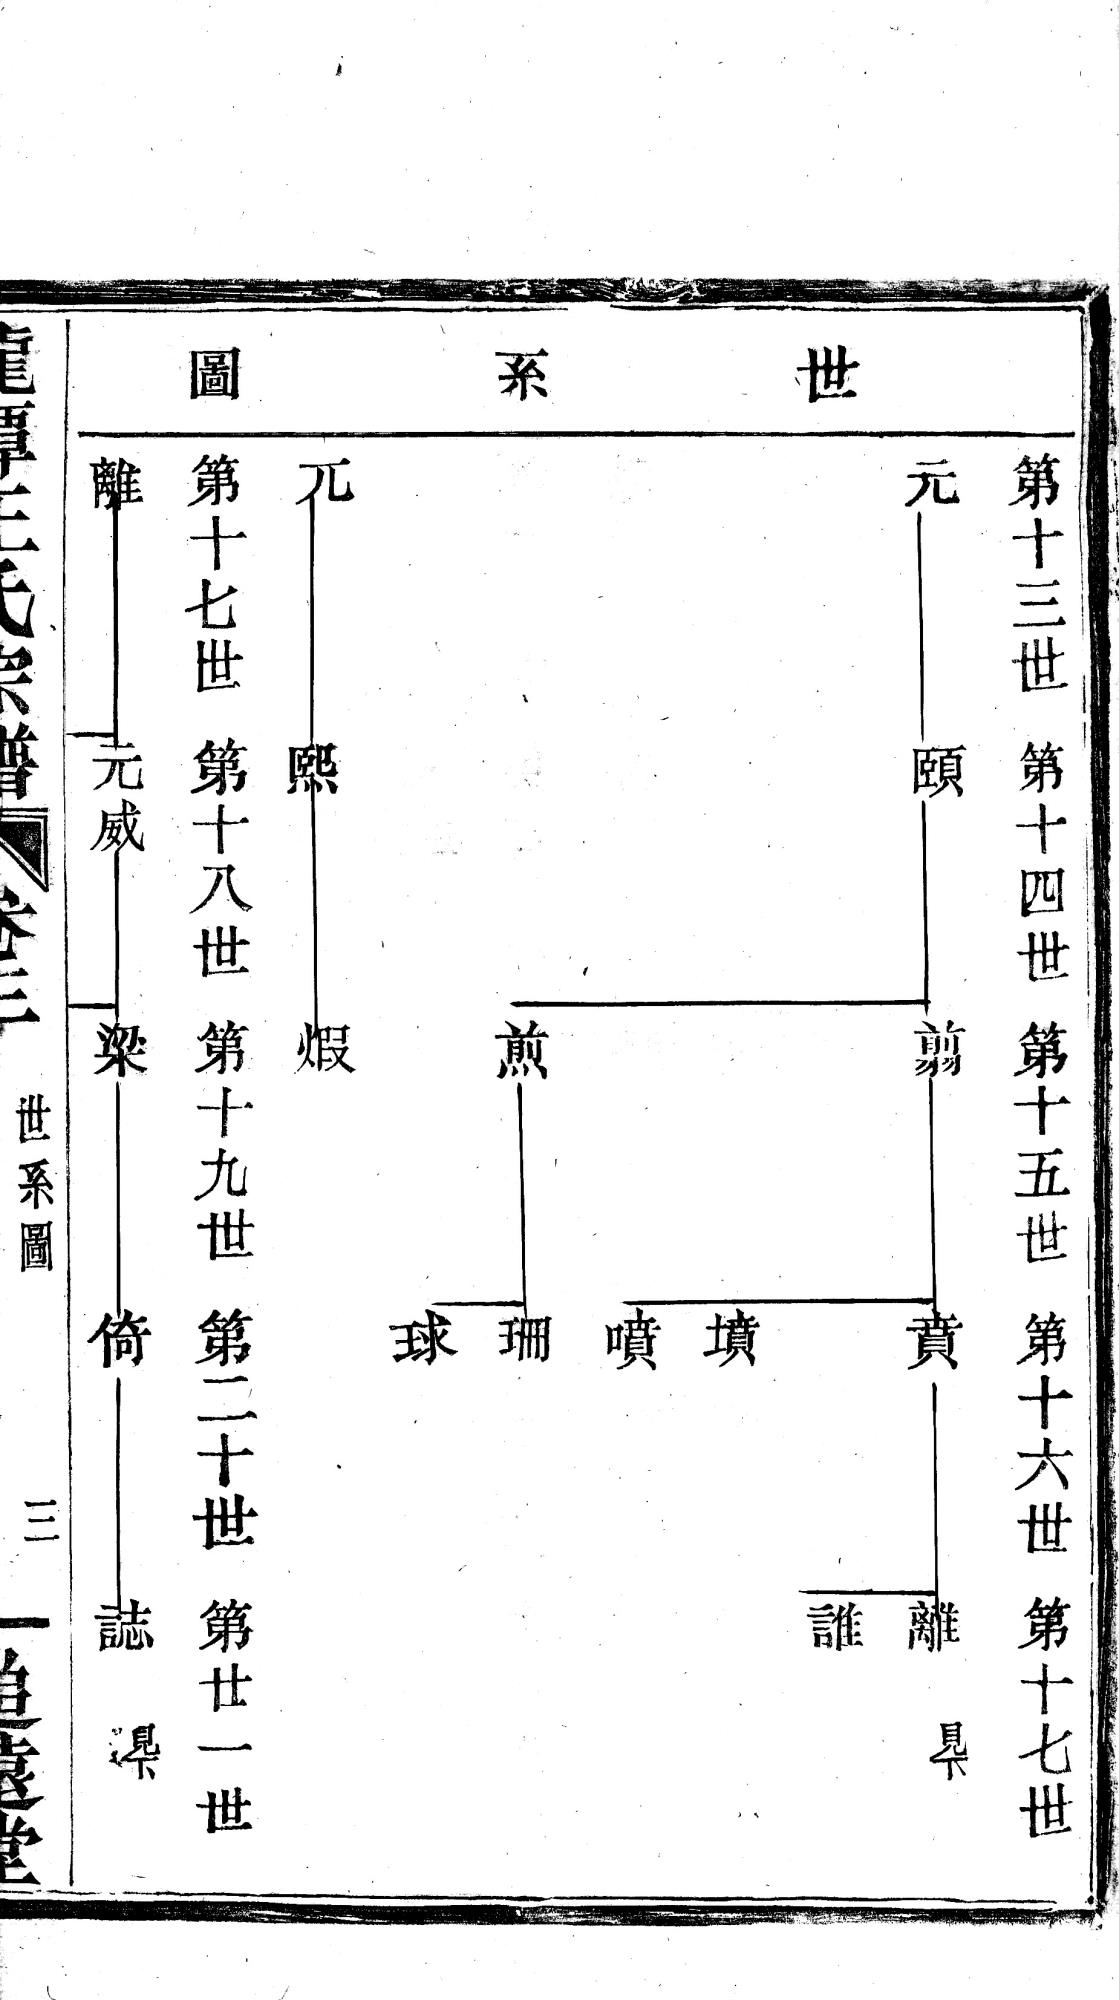 世系圖
第十三世 第十四世 第十五世 第十六世 第十七世
元 頤 翦 賁 離 見下
誰
墳
噴
煎 珊
球
兀 熙 煆
第十七世 第十八世 第十九世 第二十世 第廿一世
離 元威 梁 倚 誌 見下
龍潭王氏宗譜 卷三 世系圖 三 追遠堂